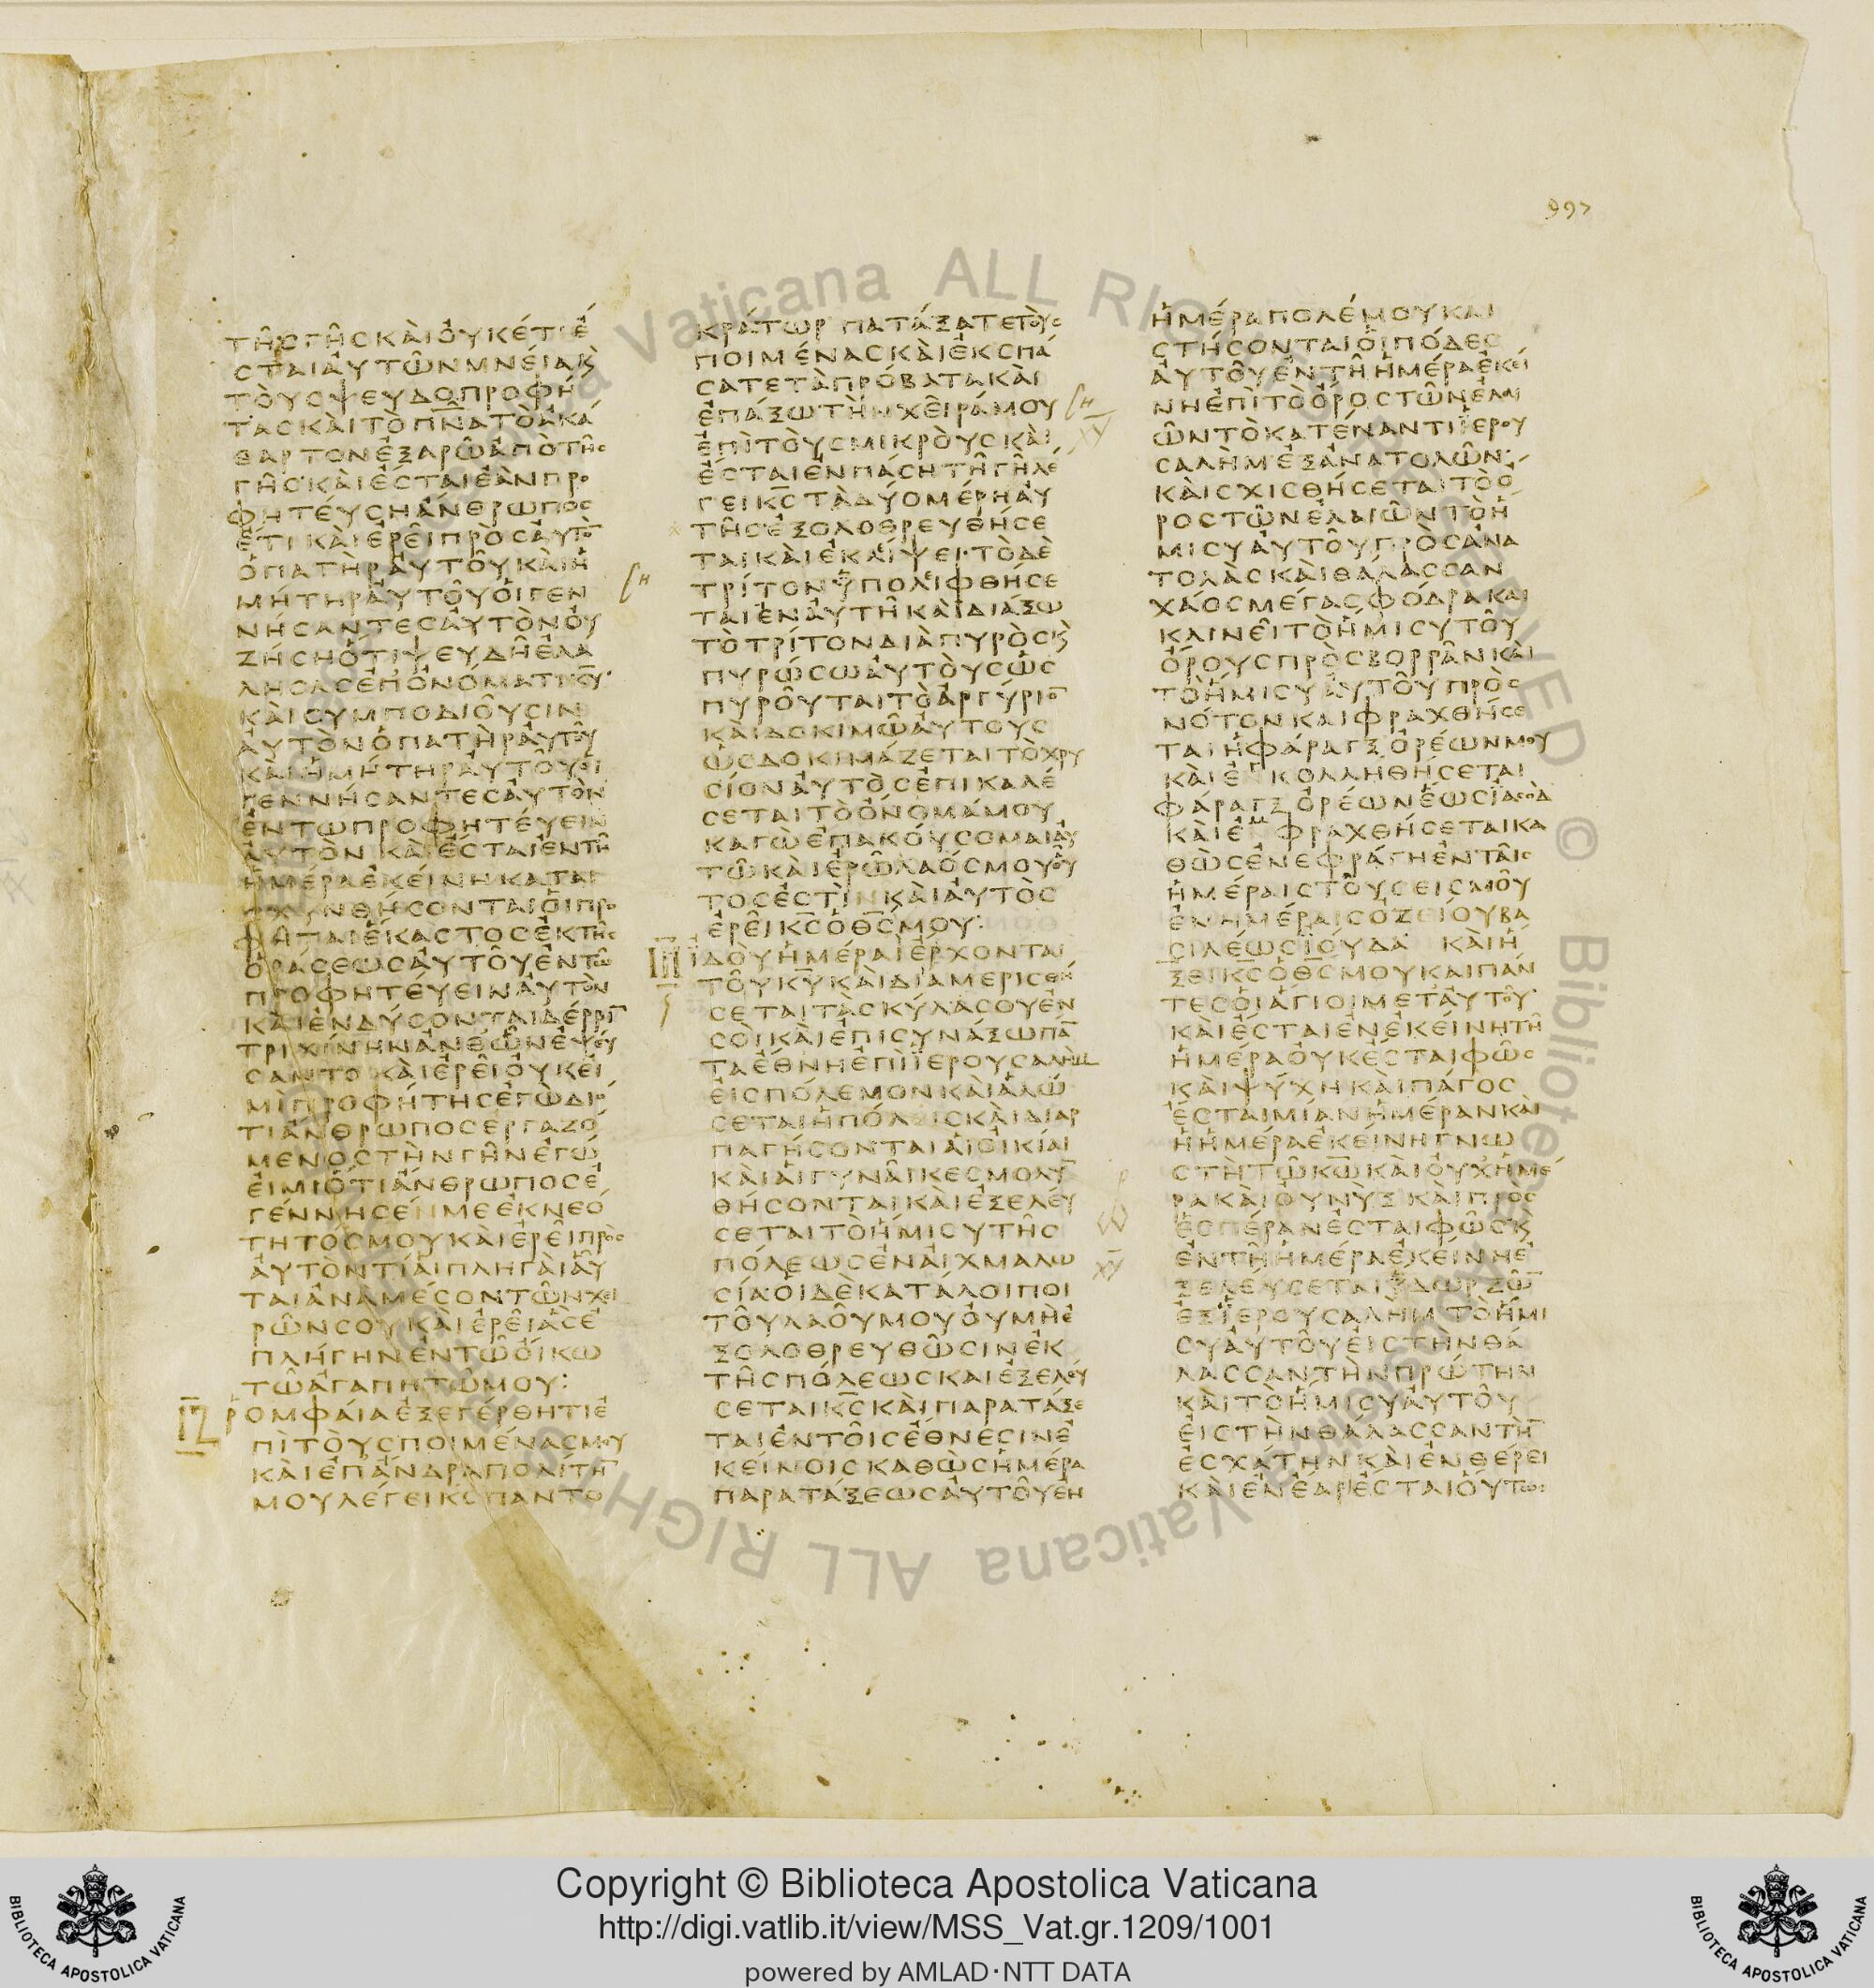 997
ΤΗϹΓΗϹΚΑΙΟΥΚΕΤΙΕ
ϹΤΑΙΑΥΤΩΝΜΝΕΙΑΚ
ΤΟΥϹΨΕΥΔΟΠΡΟΦΗ
ΤΑϹΚΑΙΤΟΠΝΑΤΟΑΚΑ
ΘΑΡΤΟΝΕΞΑΡΩΑΠΟΤΗϹ
ΓΗϹΚΑΙΕϹΤΑΙΕΑΝΠΡΟ
ΦΗΤΕΥϹΗΑΝΘΡΩΠΟϹ
ΕΤΙΚΑΙΕΡΕΙΠΡΟϹΑΥΤΟ
ΟΠΑΤΗΡΑΥΤΟΥΚΑΙΗ
ΜΗΤΗΡΑΥΤΟΥΟΙΓΕΝ
ΝΗϹΑΝΤΕϹΑΥΤΟΝΟΥ
ΖΗϹΗΟΤΙΨΕΥΔΗΕΛΑ
ΛΗϹΑϹΕΠΟΝΟΜΑΤΙΚΥ
ΚΑΙϹΥΜΠΟΔΙΟΥϹΙΝ
ΑΥΤΟΝΟΠΑΤΗΡΑΥΤΟΥ
ΚΑΙΗΜΗΤΗΡΑΥΤΟΥΟΙ
ΓΕΝΝΗϹΑΝΤΕϹΑΥΤΟΝ
ΕΝΤΩΠΡΟΦΗΤΕΥΕΙΝ
ΑΥΤΟΝ ΚΑΙΕϹΤΑΙΕΝΤΗ
ΗΜΕΡΑΕΚΕΙΝΗΚΑΤΑΙ
ϹΧΥΝΘΗϹΟΝΤΑΙΟΙΠΡΟ
ΦΗΤΑΙΕΚΑϹΤΟϹΕΚΤΗϹ
ΟΡΑϹΕΩϹΑΥΤΟΥΕΝΤΩ
ΠΡΟΦΗΤΕΥΕΙΝΑΥΤΟΝ
ΚΑΙΕΝΔΥϹΟΝΤΑΙΔΕΡΡΙ
ΤΡΙΧΙΝΗΝΑΝΘΩΝΕΨΕΥ
ϹΑΝΤΟ ΚΑΙΕΡΕΙΟΥΚΕΙ
ΜΙΠΡΟΦΗΤΗϹΕΓΩΔΙΟ
ΤΙΑΝΘΡΩΠΟϹΕΡΓΑΖΟ
ΜΕΝΟϹΤΗΝΓΗΝΕΓΩ
ΕΙΜΙΟΤΙΑΝΘΡΩΠΟϹΕ
ΓΕΝΝΗϹΕΝΜΕΕΚΝΕΟ
ΤΗΤΟϹΜΟΥΚΑΙΕΡΕΙΠΡΟϹ
ΑΥΤΟΝΤΙΑΙΠΛΗΓΑΙΑΥ
ΤΑΙΑΝΑΜΕϹΟΝΤΩΝΧΕΙ
ΡΩΝϹΟΥΚΑΙΕΡΕΙΑϹΕ
ΠΛΗΓΗΝΕΝΤΩΟΙΚΩ
ΤΩΑΓΑΠΗΤΩΜΟΥ:
ΡΟΜΦΑΙΑΕΞΕΓΕΡΘΗΤΙΕ
ΠΙΤΟΥϹΠΟΙΜΕΝΑϹΜΟΥ
ΚΑΙΕΠΑΝΔΡΑΠΟΛΙΤΗ
ΜΟΥΛΕΓΕΙΚϹΠΑΝΤΟ
ΚΡΑΤΩΡ ΠΑΤΑΞΑΤΕΤΟΥϹ
ΠΟΙΜΕΝΑϹΚΑΙΕΚϹΠΑ
ϹΑΤΕΤΑΠΡΟΒΑΤΑΚΑΙ
ΕΠΑΞΩΤΗΝΧΕΙΡΑΜΟΥ
ΕΠΙΤΟΥϹΜΙΚΡΟΥϹΚΑΙ
ΕϹΤΑΙΕΝΠΑϹΗΤΗΓΗΛΕ
ΓΕΙΚϹΤΑΔΥΟΜΕΡΗΑΥ
ΤΗϹΕΞΟΛΟΘΡΕΥΘΗϹΕ
ΤΑΙΚΑΙΕΚΛΙΨΕΙ·ΤΟΔΕ
ΤΡΙΤΟΝΥΠΟΛΙΦΘΗϹΕ
ΤΑΙΕΝΑΥΤΗΚΑΙΔΙΑΞΩ
ΤΟΤΡΙΤΟΝΔΙΑΠΥΡΟϹΚ
ΠΥΡΩϹΩΑΥΤΟΥϹΩϹ
ΠΥΡΟΥΤΑΙΤΟΑΡΓΥΡΙΟ
ΚΑΙΔΟΚΙΜΩΑΥΤΟΥϹ
ΩϹΔΟΚΙΜΑΖΕΤΑΙΤΟΧΡΥ
ϹΙΟΝΑΥΤΟϹΕΠΙΚΑΛΕ
ϹΕΤΑΙΤΟΟΝΟΜΑΜΟΥ
ΚΑΓΩΕΠΑΚΟΥϹΟΜΑΙΑΥ
ΤΩΚΑΙΕΡΩΛΑΟϹΜΟΥΟΥ
ΤΟϹΕϹΤΙΝΚΑΙΑΥΤΟϹ
ΕΡΕΙΚϹΟΘϹΜΟΥ:
ΙΔΟΥΗΜΕΡΑΙΕΡΧΟΝΤΑΙ
ΤΟΥΚΥΚΑΙΔΙΑΜΕΡΙϹΘΗ
ϹΕΤΑΙΤΑϹΚΥΛΑϹΟΥΕΝ
ϹΟΙΚΑΙΕΠΙϹΥΝΑΞΩΠΑ
ΤΑΕΘΝΗΕΠΙΙΕΡΟΥϹΑΛΗΜ
ΕΙϹΠΟΛΕΜΟΝΚΑΙΑΛΩ
ϹΕΤΑΙΗΠΟΛΙϹΚΑΙΔΙΑΡ
ΠΑΓΗϹΟΝΤΑΙΑΙΟΙΚΙΑΙ
ΚΑΙΑΙΓΥΝΑΙΚΕϹΜΟΛΥ
ΘΗϹΟΝΤΑΙΚΑΙΕΞΕΛΕΥ
ϹΕΤΑΙΤΟΗΜΙϹΥΤΗϹ
ΠΟΛΕΩϹΕΝΑΙΧΜΑΛΩ
ϹΙΑΟΙΔΕΚΑΤΑΛΟΙΠΟΙ
ΤΟΥΛΑΟΥΜΟΥΟΥΜΗΕ
ΞΟΛΟΘΡΕΥΘΩϹΙΝΕΚ
ΤΗϹΠΟΛΕΩϹΚΑΙΕΞΕΛΕΥ
ϹΕΤΑΙΚϹΚΑΙΠΑΡΑΤΑΞΕ
ΤΑΙΕΝΤΟΙϹΕΘΝΕϹΙΝΕ
ΚΕΙΝΟΙϹΚΑΘΩϹΗΜΕΡΑ
ΠΑΡΑΤΑΞΕΩϹΑΥΤΟΥΕΝ
ΗΜΕΡΑΠΟΛΕΜΟΥΚΑΙ
ϹΤΗϹΟΝΤΑΙΟΙΠΟΔΕϹ
ΑΥΤΟΥΕΝΤΗΗΜΕΡΑΕΚΕΙ
ΝΗΕΠΙΤΟΟΡΟϹΤΩΝΕΛΑΙ
ΩΝΤΟΚΑΤΕΝΑΝΤΙΙΕΡΟΥ
ϹΑΛΗΜΕΞΑΝΑΤΟΛΩΝ
ΚΑΙϹΧΙϹΘΗϹΕΤΑΙΤΟΟ
ΡΟϹΤΩΝΕΛΑΙΩΝΤΟΗ
ΜΙϹΥΑΥΤΟΥΠΡΟϹΑΝΑ
ΤΟΛΑϹΚΑΙΘΑΛΑϹϹΑΝ
ΧΑΟϹΜΕΓΑϹΦΟΔΡΑΚΑΙ
ΚΛΙΝΕΙΤΟΗΜΙϹΥΤΟΥ
ΟΡΟΥϹΠΡΟϹΒΟΡΡΑΝΚΑΙ
ΤΟΗΜΙϹΥΑΥΤΟΥΠΡΟϹ
ΝΟΤΟΝΚΑΙΦΡΑΧΘΗϹΕ
ΤΑΙΗΦΑΡΑΓΞΟΡΕΩΝΜΟΥ
ΚΑΙΕΝΚΟΛΛΗΘΗϹΕΤΑΙ
ΦΑΡΑΓΞΟΡΕΩΝΕΩϹΙΑϹΟΔ
ΚΑΙΕΝΦΡΑΧΘΗϹΕΤΑΙΚΑ
ΘΩϹΕΝΕΦΡΑΓΗΕΝΤΑΙϹ
ΗΜΕΡΑΙϹΤΟΥϹΕΙϹΜΟΥ
ΕΝΗΜΕΡΑΙϹΟΖΕΙΟΥΒΑ
ϹΙΛΕΩϹΙΟΥΔΑ ΚΑΙΗ
ΞΕΙΚϹΟΘϹΜΟΥΚΑΙΠΑΝ
ΤΕϹΟΙΑΓΙΟΙΜΕΤΑΥΤΟΥ
ΚΑΙΕϹΤΑΙΕΝΕΚΕΙΝΗΤΗ
ΗΜΕΡΑΟΥΚΕϹΤΑΙΦΩϹ
ΚΑΙΨΥΧΗΚΑΙΠΑΓΟϹ
ΕϹΤΑΙΜΙΑΝΗΜΕΡΑΝΚΑΙ
ΗΗΜΕΡΑΕΚΕΙΝΗΓΝΩ
ϹΤΗΤΩΚΩΚΑΙΟΥΧΗΜΕ
ΡΑΚΑΙΟΥΝΥΞΚΑΙΠΡΟϹ
ΕϹΠΕΡΑΝΕϹΤΑΙΦΩϹΚ
ΕΝΤΗΗΜΕΡΑΕΚΕΙΝΗΕ
ΞΕΛΕΥϹΕΤΑΙΥΔΩΡΖΩ
ΕΞΙΕΡΟΥϹΑΛΗΜΤΟΗΜΙ
ϹΥΑΥΤΟΥΕΙϹΤΗΝΘΑ
ΛΑϹϹΑΝΤΗΝΠΡΩΤΗΝ
ΚΑΙΤΟΗΜΙϹΥΑΥΤΟΥ
ΕΙϹΤΗΝΘΑΛΑϹϹΑΝΤΗ
ΕϹΧΑΤΗΝΚΑΙΕΝΘΕΡΕΙ
ΚΑΙΕΝΕΑΡΙΕϹΤΑΙΟΥΤΩϹ
Vaticana ALL RIGHTS RESERVED © Biblioteca Apostolica Vaticana ALL RIGHTS
Copyright © Biblioteca Apostolica Vaticana
http://digi.vatlib.it/view/MSS_Vat.gr.1209/1001
powered by AMLAD·NTT DATA
BIBLIOTECA APOSTOLICA VATICANA
BIBLIOTECA APOSTOLICA VATICANA